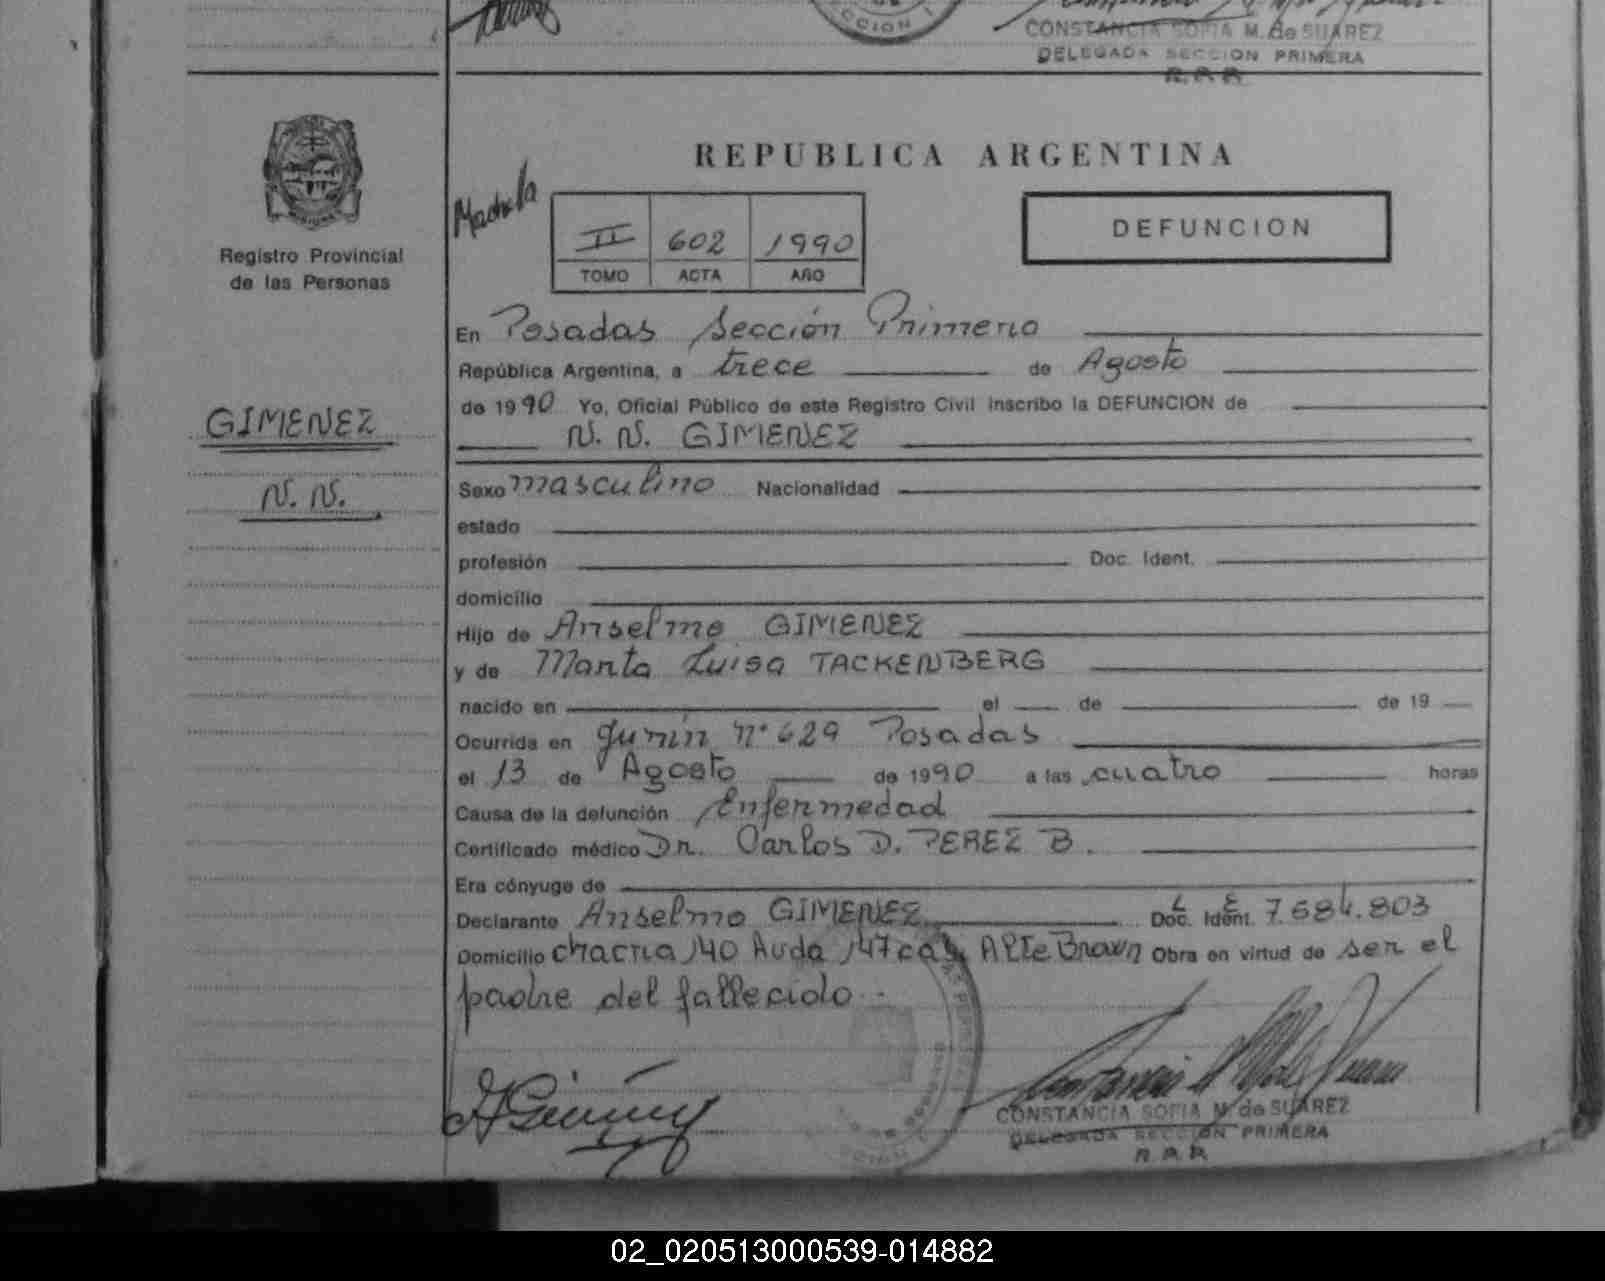 CONSTANCIA SOFIA M. de SUAREZ
DELEGADA SECCION PRIMERA
R.P.P.
Registro Provincial
de las Personas
GIMENEZ
N. N.
REPUBLICA ARGENTINA
II 602 1990
TOMO ACTA AÑO
DEFUNCION
En Posadas Sección Primera
República Argentina, a trece de Agosto
de 1990 Yo, Oficial Público de este Registro Civil inscribo la DEFUNCION de
N. N. GIMENEZ
Sexo masculino Nacionalidad
estado
profesión Doc. Ident.
domicilio
Hijo de Anselmo GIMENEZ
y de Marta Luisa TACKENBERG
nacido en el de de 19
Ocurrida en Junín Nº 629 Posadas
el 13 de Agosto de 1990 a las cuatro horas
Causa de la defunción Enfermedad
Certificado médico Dr. Carlos D. PEREZ B.
Era cónyuge de
Declarante Anselmo GIMENEZ Doc. Ident. L E 7.684.803
Domicilio chacra 140 Avda 147 cas, Alte Brown Obra en virtud de ser el
padre del fallecido.-
CONSTANCIA SOFIA M. de SUAREZ
DELEGADA SECCION PRIMERA
R.P.P.
02_020513000539-014882